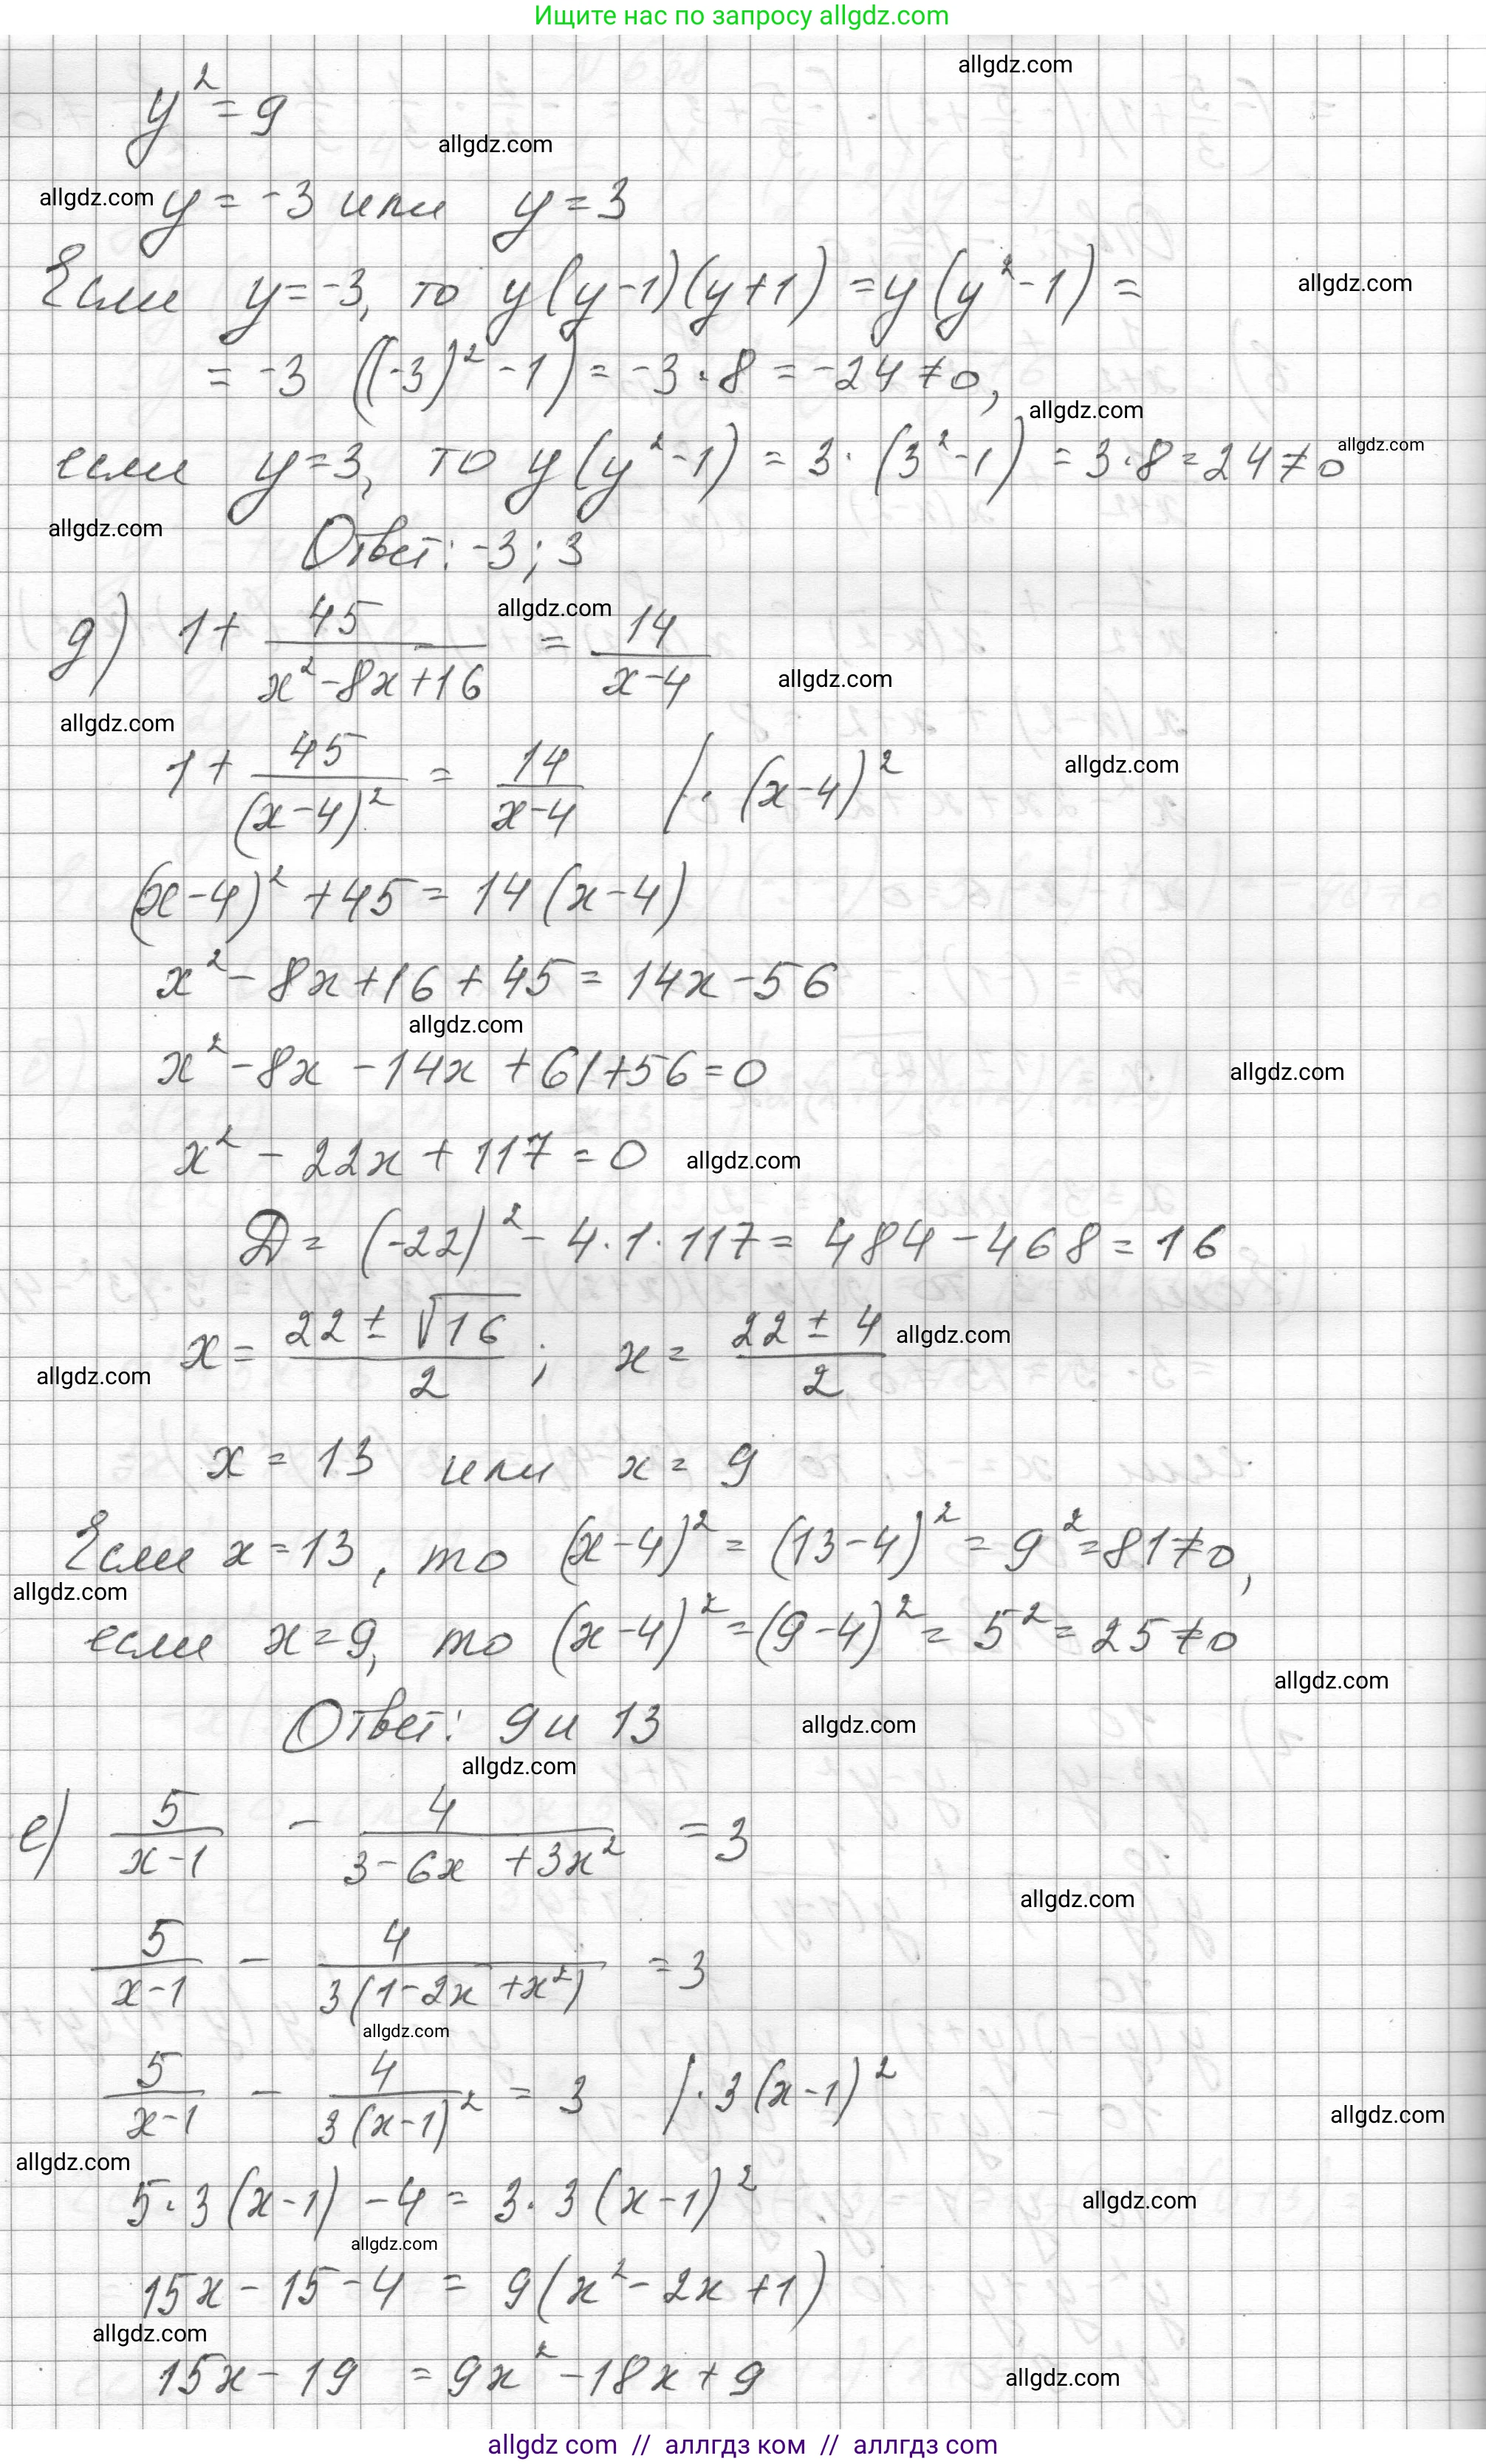 Ищите нас по запросу allgdz.com
allgdz.com
y² = 9
allgdz.com
allgdz.com
y = -3 или y = 3
Если y = -3, то y(y-1)(y+1) = y(y²-1) =
allgdz.com
= -3 ((-3)² - 1) = -3·8 = -24 ≠ 0,
allgdz.com
если y = 3, то y(y²-1) = 3·(3²-1) = 3·8 = 24 ≠ 0
allgdz.com
allgdz.com
Ответ: -3; 3
allgdz.com
д) 1 + 45/(x²-8x+16) = 14/(x-4)
allgdz.com
allgdz.com
1 + 45/(x-4)² = 14/(x-4) /· (x-4)²
allgdz.com
(x-4)² + 45 = 14(x-4)
x² - 8x + 16 + 45 = 14x - 56
allgdz.com
x² - 8x - 14x + 61 + 56 = 0
allgdz.com
x² - 22x + 117 = 0
allgdz.com
D = (-22)² - 4·1·117 = 484 - 468 = 16
x = (22 ± √16)/2 ; x = (22 ± 4)/2
allgdz.com
allgdz.com
x = 13 или x = 9
Если x = 13, то (x-4)² = (13-4)² = 9² = 81 ≠ 0,
allgdz.com
если x = 9, то (x-4)² = (9-4)² = 5² = 25 ≠ 0
allgdz.com
Ответ: 9 и 13
allgdz.com
allgdz.com
е) 5/(x-1) - 4/(3-6x+3x²) = 3
allgdz.com
5/(x-1) - 4/(3(1-2x+x²)) = 3
allgdz.com
5/(x-1) - 4/(3(x-1)²) = 3 /· 3(x-1)²
allgdz.com
allgdz.com
5·3(x-1) - 4 = 3·3(x-1)²
allgdz.com
allgdz.com
15x - 15 - 4 = 9(x² - 2x + 1)
allgdz.com
15x - 19 = 9x² - 18x + 9
allgdz.com
allgdz com // аллгдз ком // аллгdз com